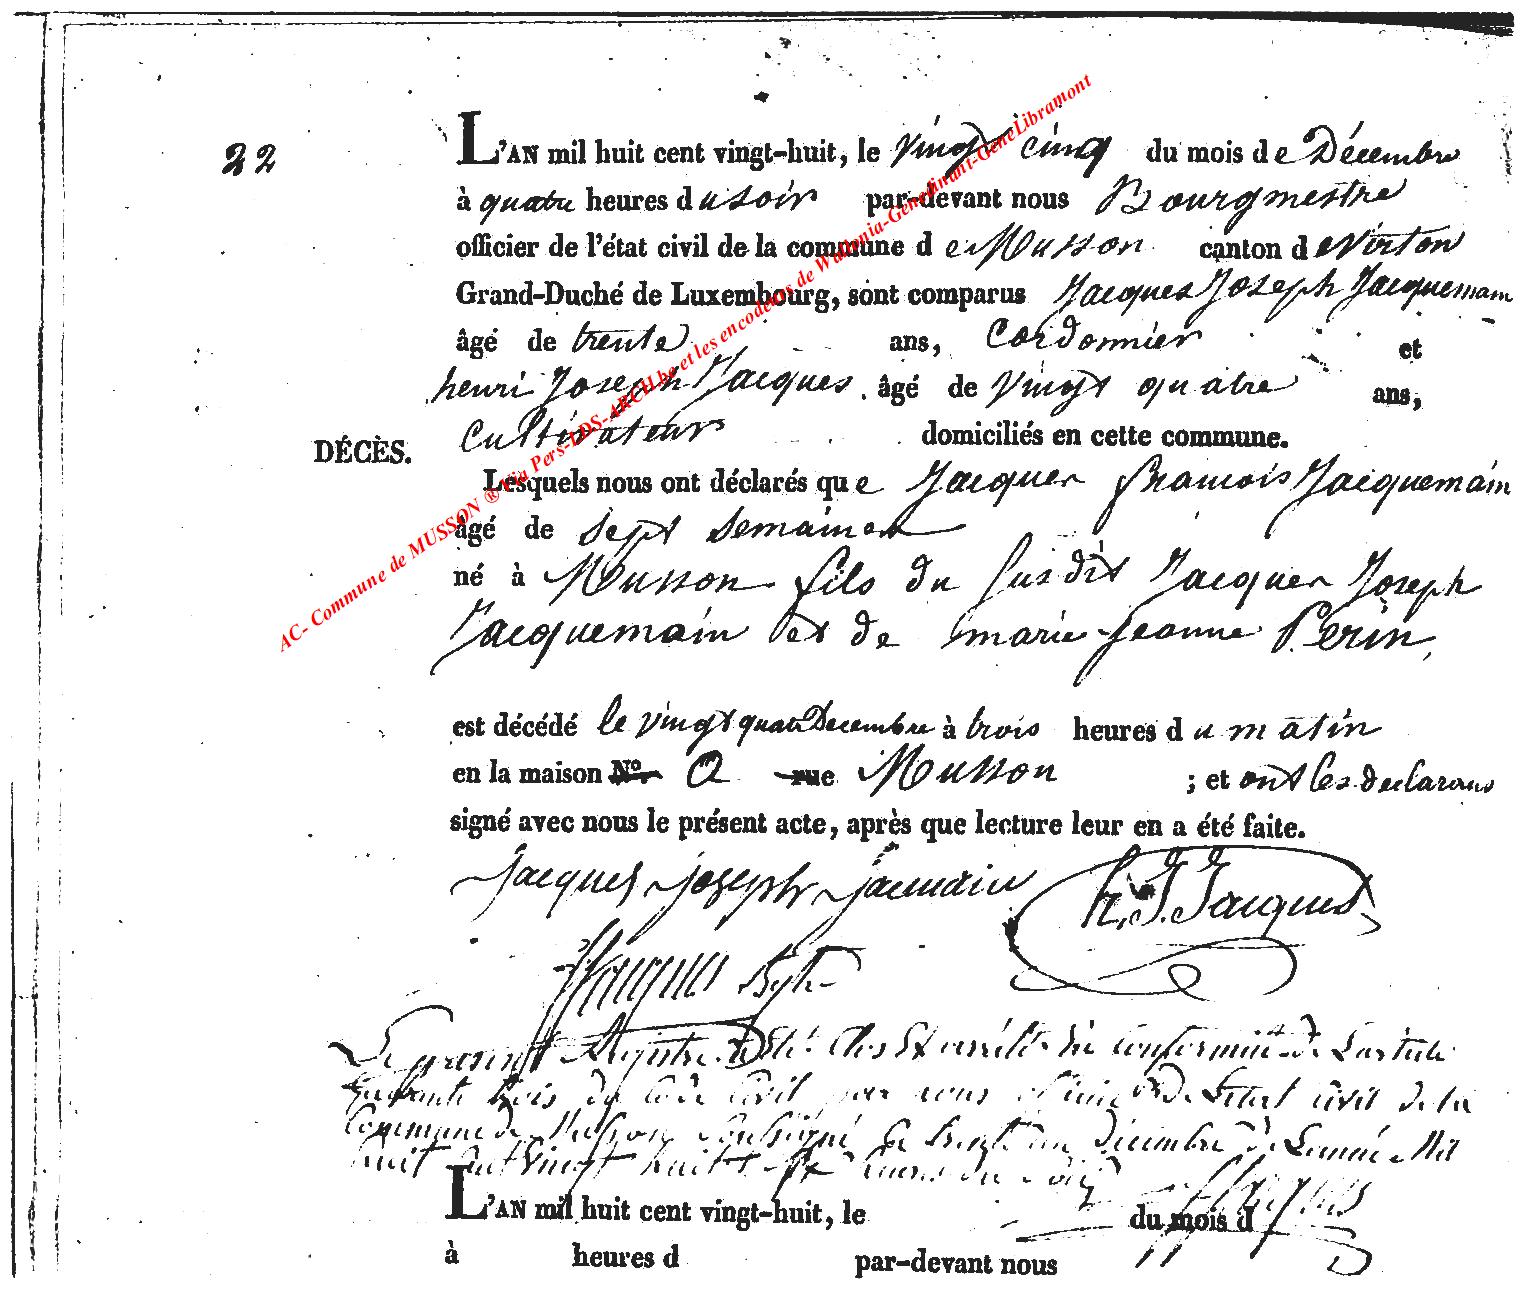 22
L'AN mil huit cent vingt-huit, le vingt cinq du mois de Décembre
à quatre heures du soir par-devant nous Bourgmestre
officier de l'état civil de la commune de Musson canton de Virton
Grand-Duché de Luxembourg, sont comparus Jacques Joseph Jacquemain
âgé de trente ans, Cordonnier et
henri Joseph Jacques âgé de vingt quatre ans,
Cultivateur domiciliés en cette commune.
DÉCÈS.
Lesquels nous ont déclarés que Jacques francois Jacquemain
âgé de sept semaines
né à Musson fils du susdit Jacques Joseph
Jacquemain et de marie-jeanne Perin,
est décédé le vingt quatre Decembre à trois heures du matin
en la maison No a rue Musson ; et ont les declarans
signé avec nous le présent acte, après que lecture leur en a été faite.
Jacques joseph Jacmain h. J. Jacques
Jacques
Le present Registre a été Clos Et arrété En conformité de Larticle
quarante trois du Code Civil par nous officier de Letat civil de la
Commune de Musson soussigné Le trente un Décembre de Lannée Mil
huit cent vingt huit a six heures du soir
Jacques
L'AN mil huit cent vingt-huit, le du mois d
à heures d par-devant nous
AC- Commune de MUSSON ® Via Pers-LDS-ARCH.be et les encodeurs de Wallonia-Genedinant-GeneLibramont